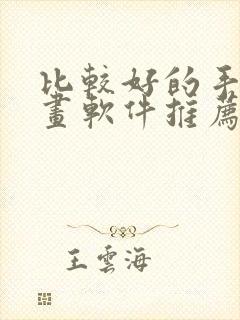 比較好的手
畫軟件推薦
王雲海